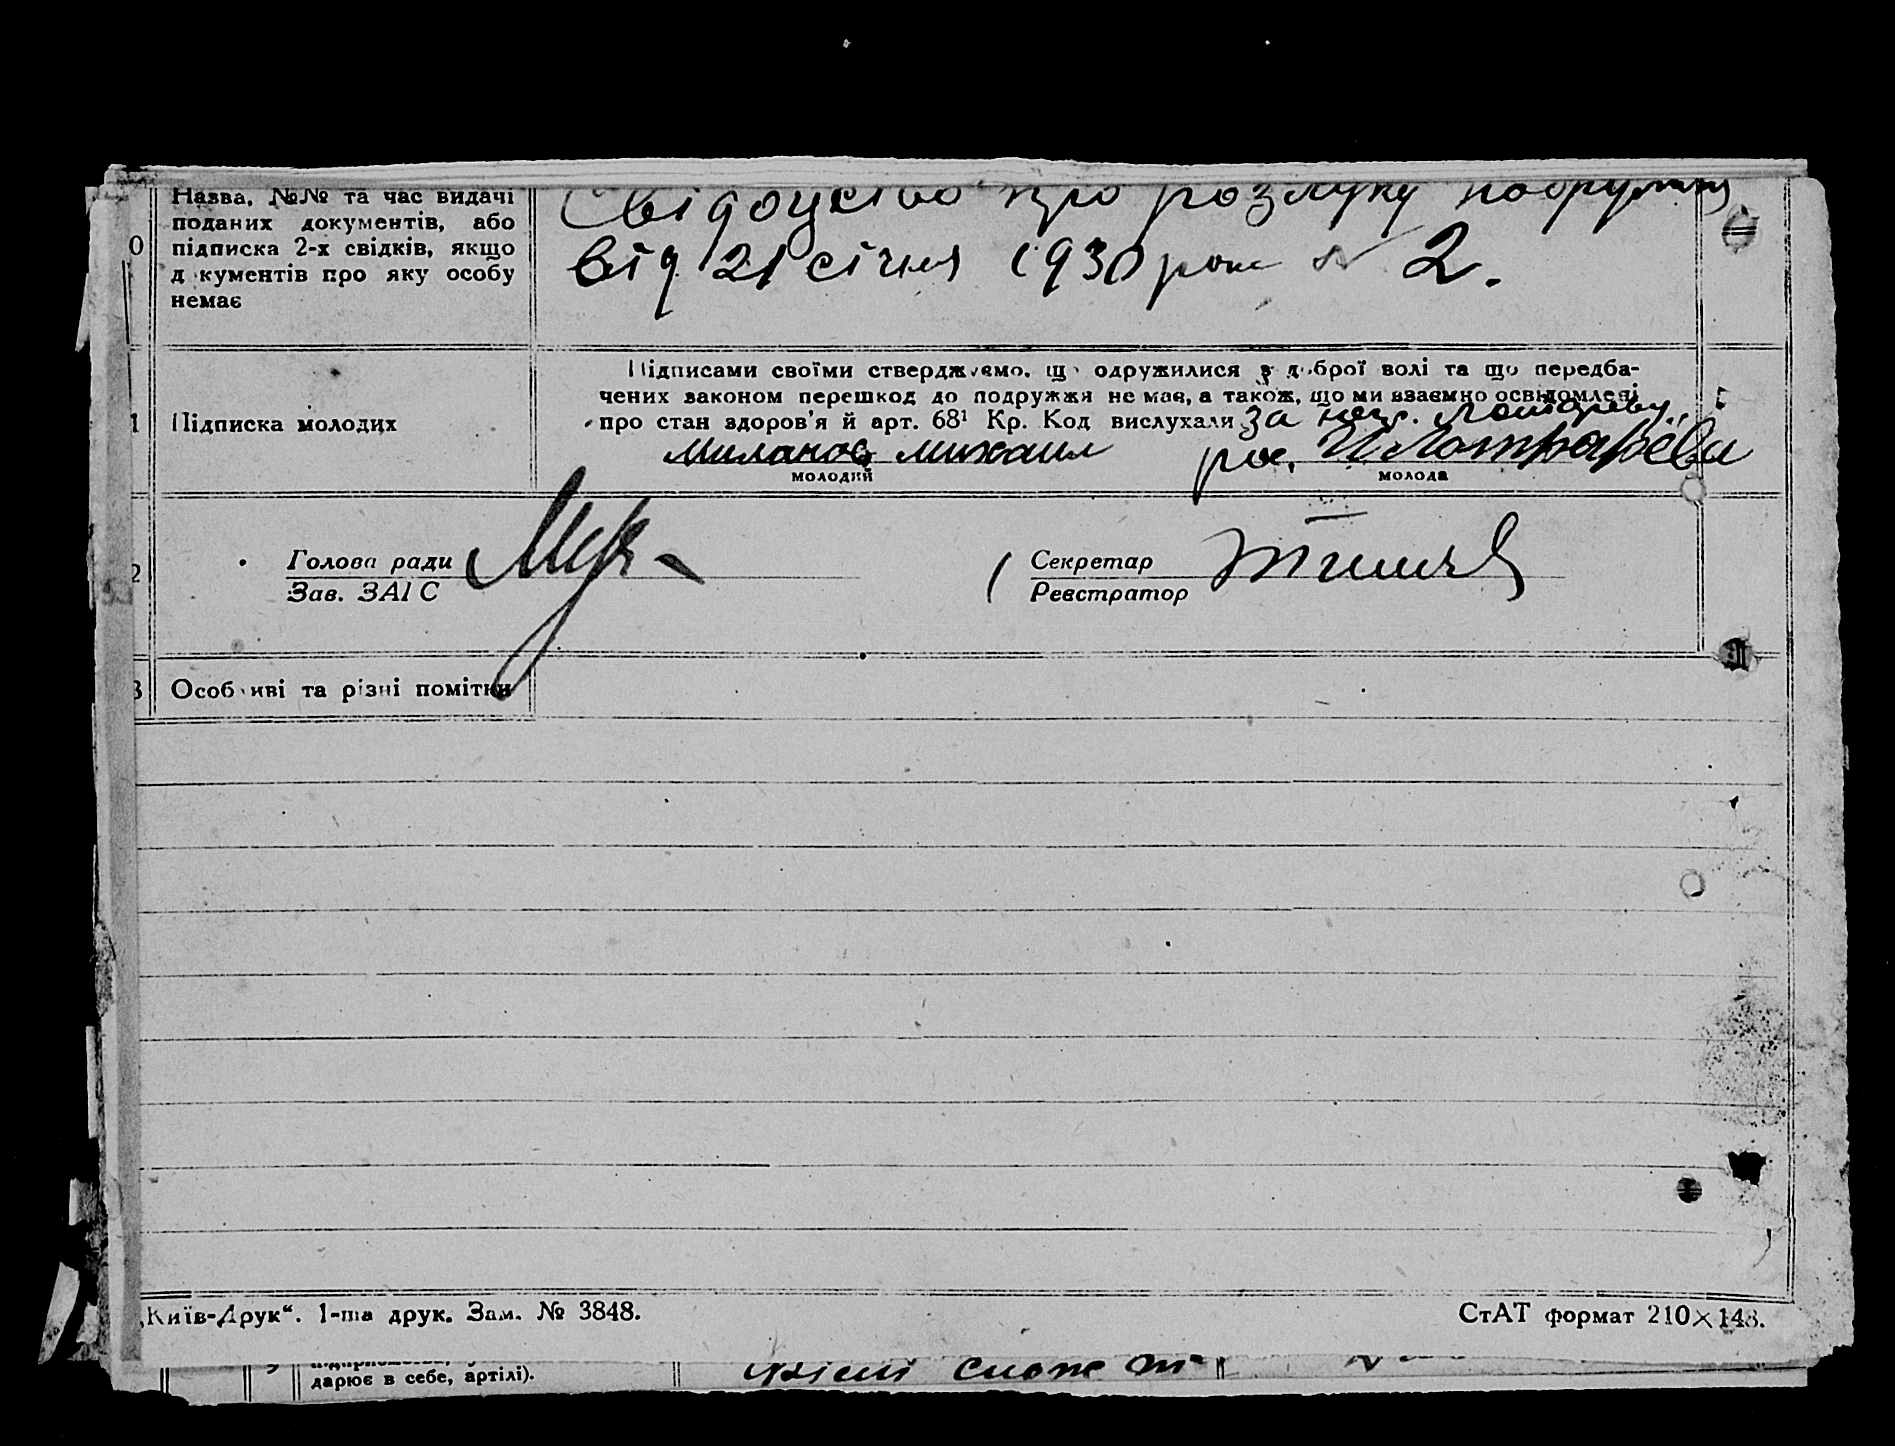 Назва, №№ та час видачі
поданих документів, або
підписка 2-х свідків, якщо
д кументів про яку особу
немає
0
Свідоцтво про розлуку подружжя
від 21 січня 1930 року № 2.
1
Підписка молодих
Підписами своїми стверджуємо, що одружилися з доброї волі та що передба-
чених законом перешкод до подружжя не має, а також, що ми взаємно освідомлені
про стан здоров'я й арт. 68¹ Кр. Код вислухали за
Миланов Михаил
рос.
молодий
молода
2
Голова ради
Зав. ЗАГС
Секретар
Реєстратор
3
Особливі та різні помітки
„Київ-Друк“. 1-ша друк. Зам. № 3848.
СтАТ формат 210×148.
дарює в себе, артілі).